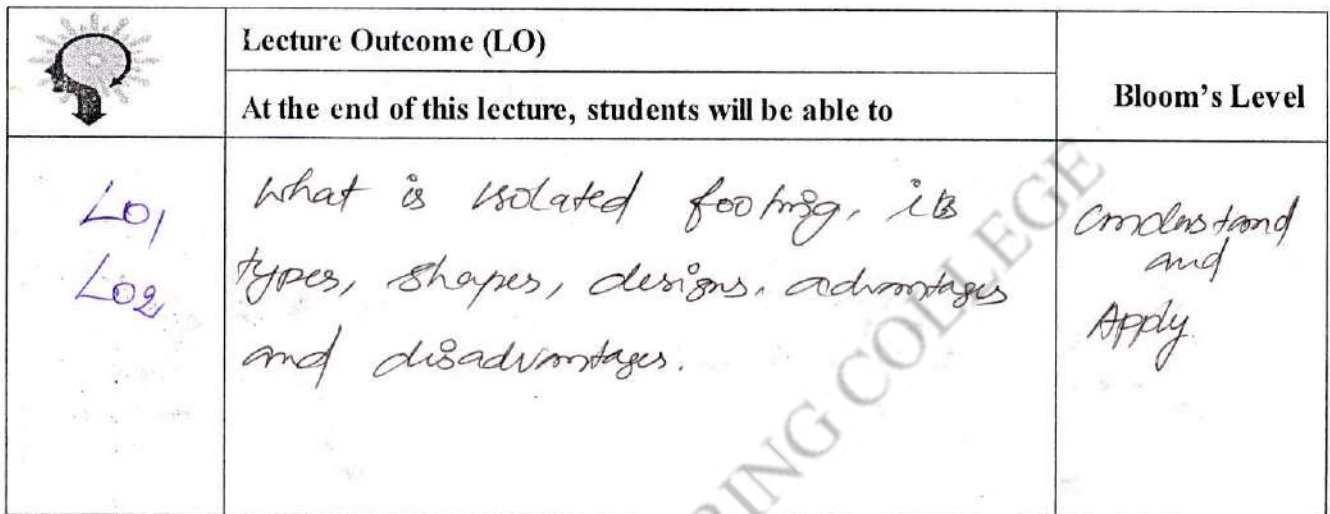 Lecture Outcome (LO)
At the end of this lecture, students will be able to
Bloom's Level
LO1
LO2
what is isolated footing, its
types, shapes, designs, advantages
and disadvantages.
Understand
and
Apply.
RING COLLEGE